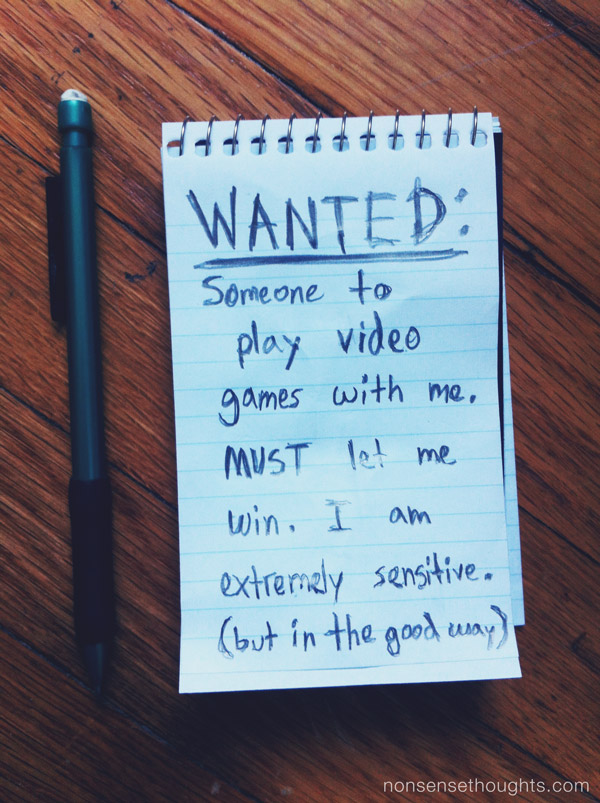 WANTED:
Someone to
play video
games with me.
MUST let me
win. I am
extremely sensitive.
(but in the good way)
nonsensethoughts.com